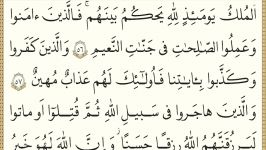 ٱلْمُلْكُ يَوْمَئِذٍ لِّلَّهِ يَحْكُمُ بَيْنَهُمْ ۚ فَٱلَّذِينَ ءَامَنُوا۟
وَعَمِلُوا۟ ٱلصَّـٰلِحَـٰتِ فِى جَنَّـٰتِ ٱلنَّعِيمِ ٥٦ وَٱلَّذِينَ كَفَرُوا۟
وَكَذَّبُوا۟ بِـَٔايَـٰتِنَا فَأُو۟لَـٰٓئِكَ لَهُمْ عَذَابٌ مُّهِينٌ ٥٧
وَٱلَّذِينَ هَاجَرُوا۟ فِى سَبِيلِ ٱللَّهِ ثُمَّ قُتِلُوٓا۟ أَوْ مَاتُوا۟
لَيَرْزُقَنَّهُمُ ٱللَّهُ رِزْقًا حَسَنًا ۚ وَإِنَّ ٱللَّهَ لَهُوَ خَيْرُ